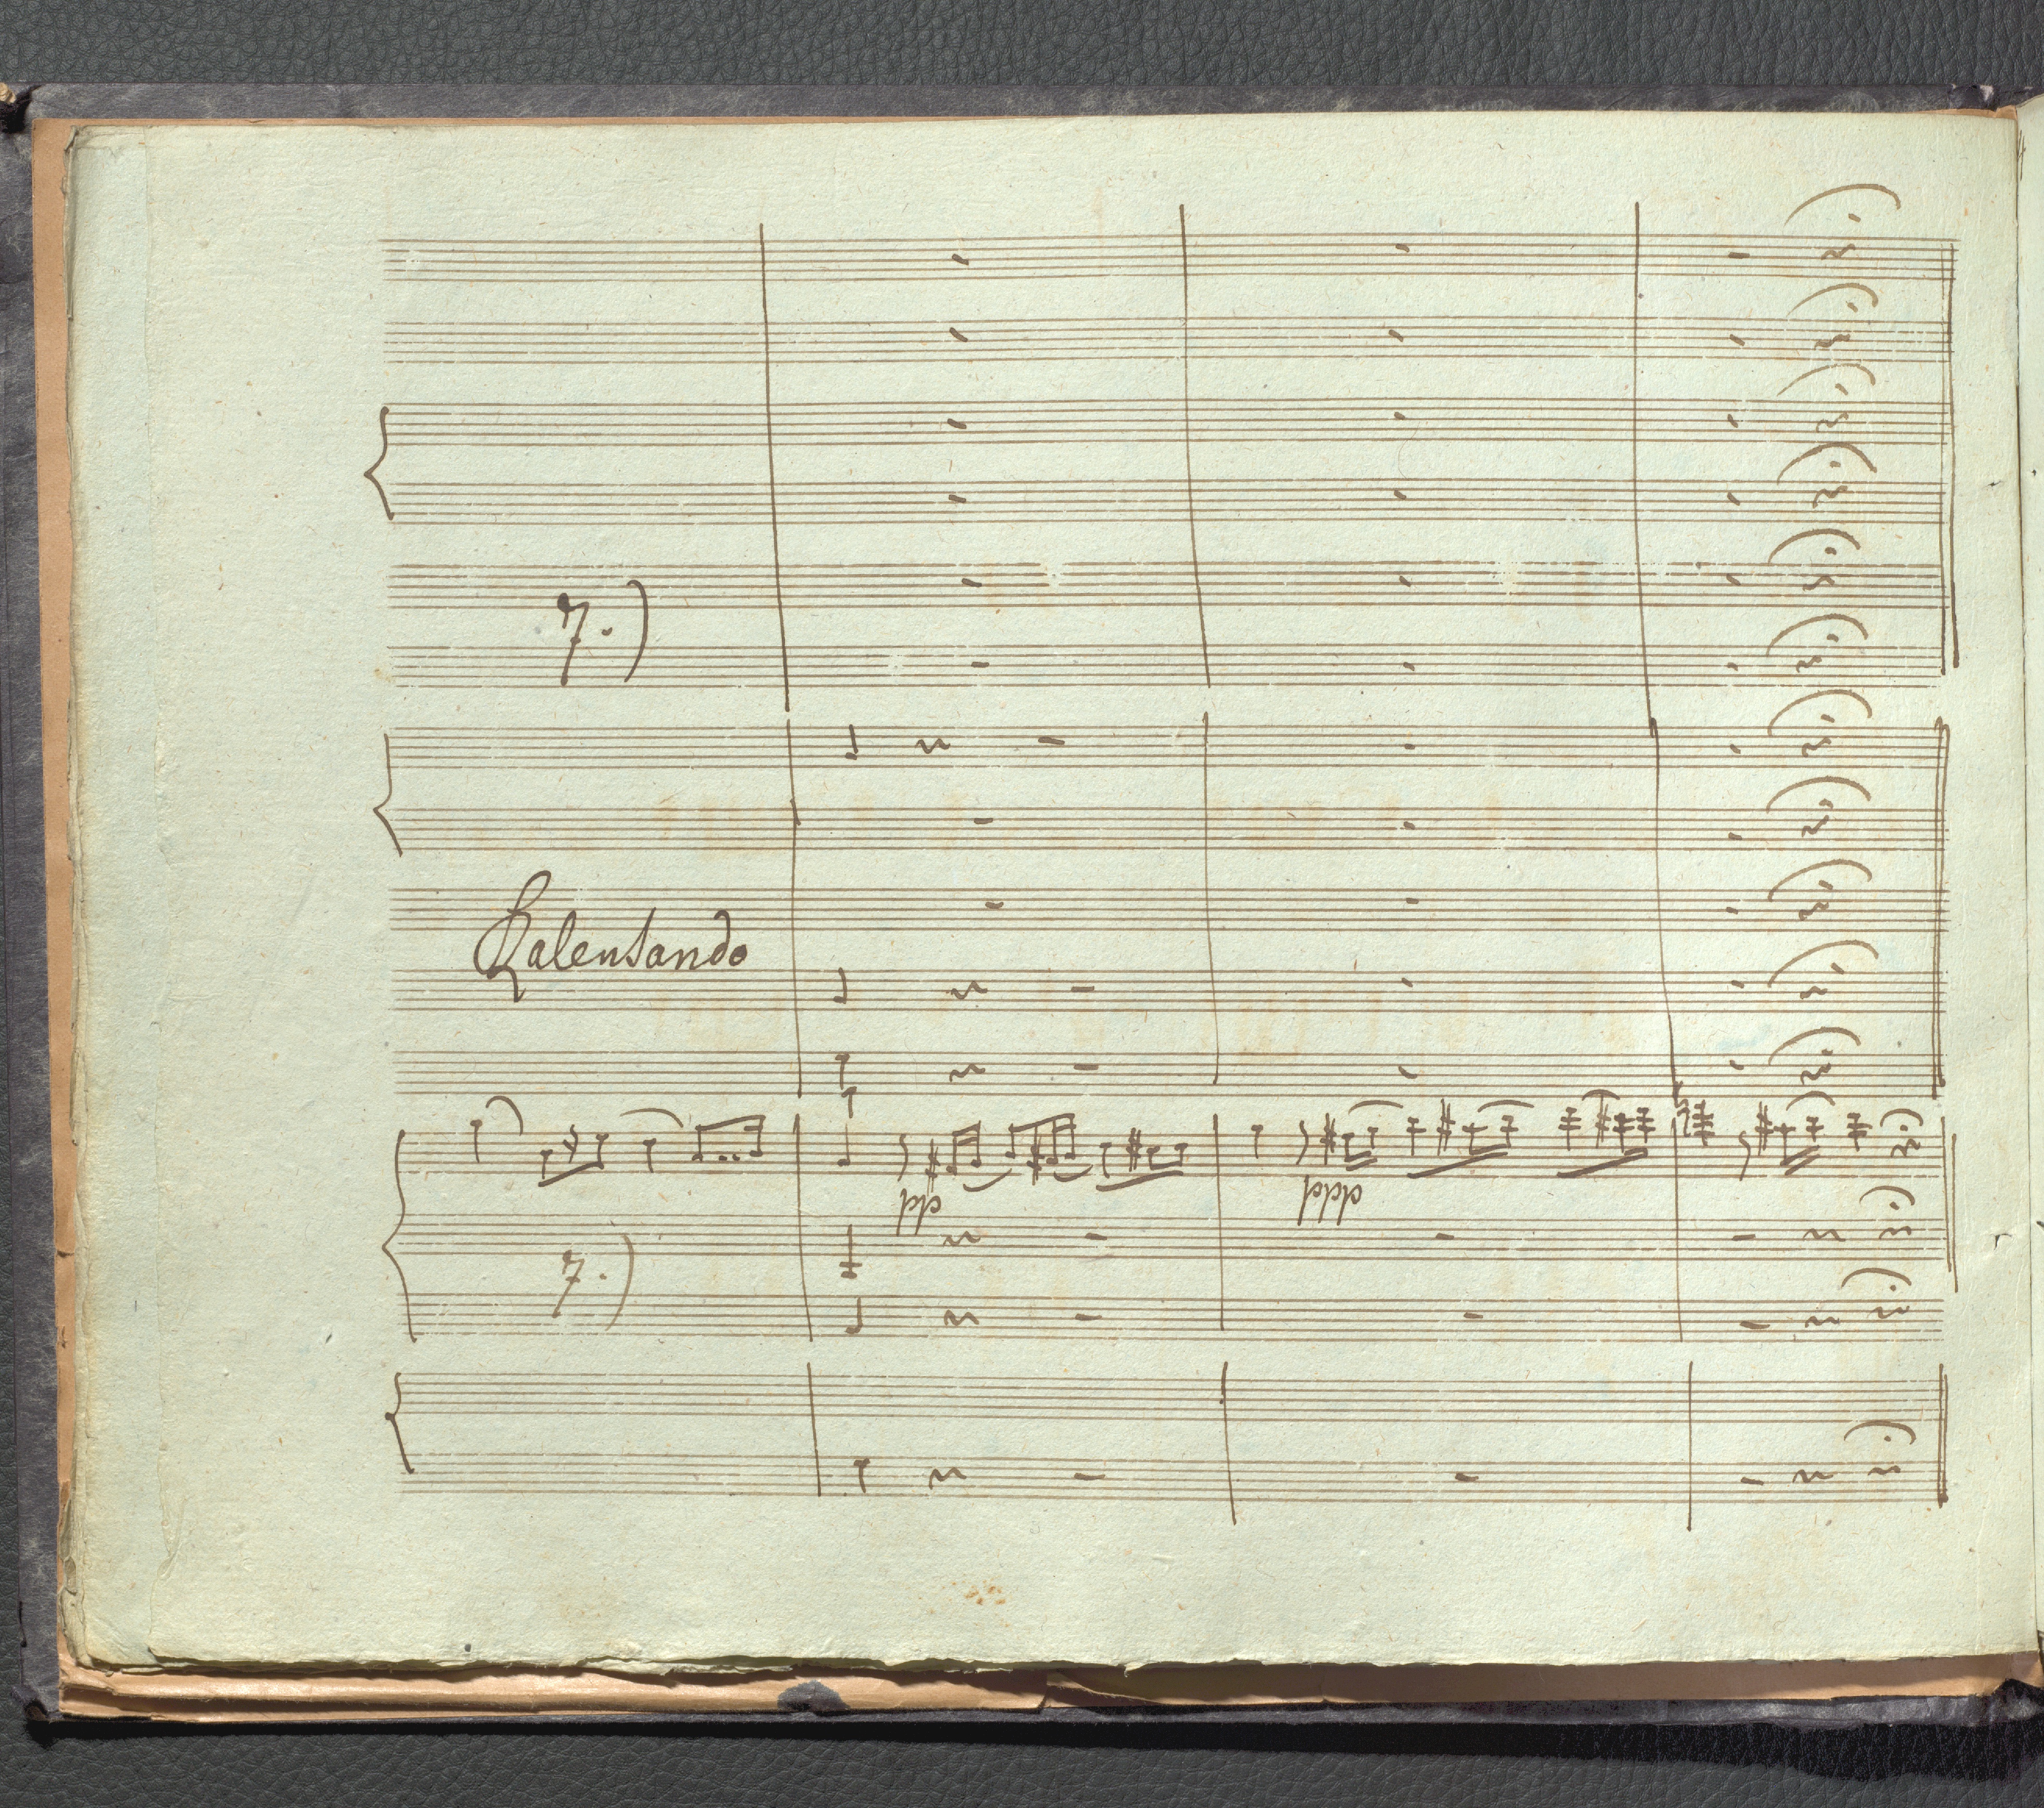 7.)
Ralentando
pp
ppp
7.)